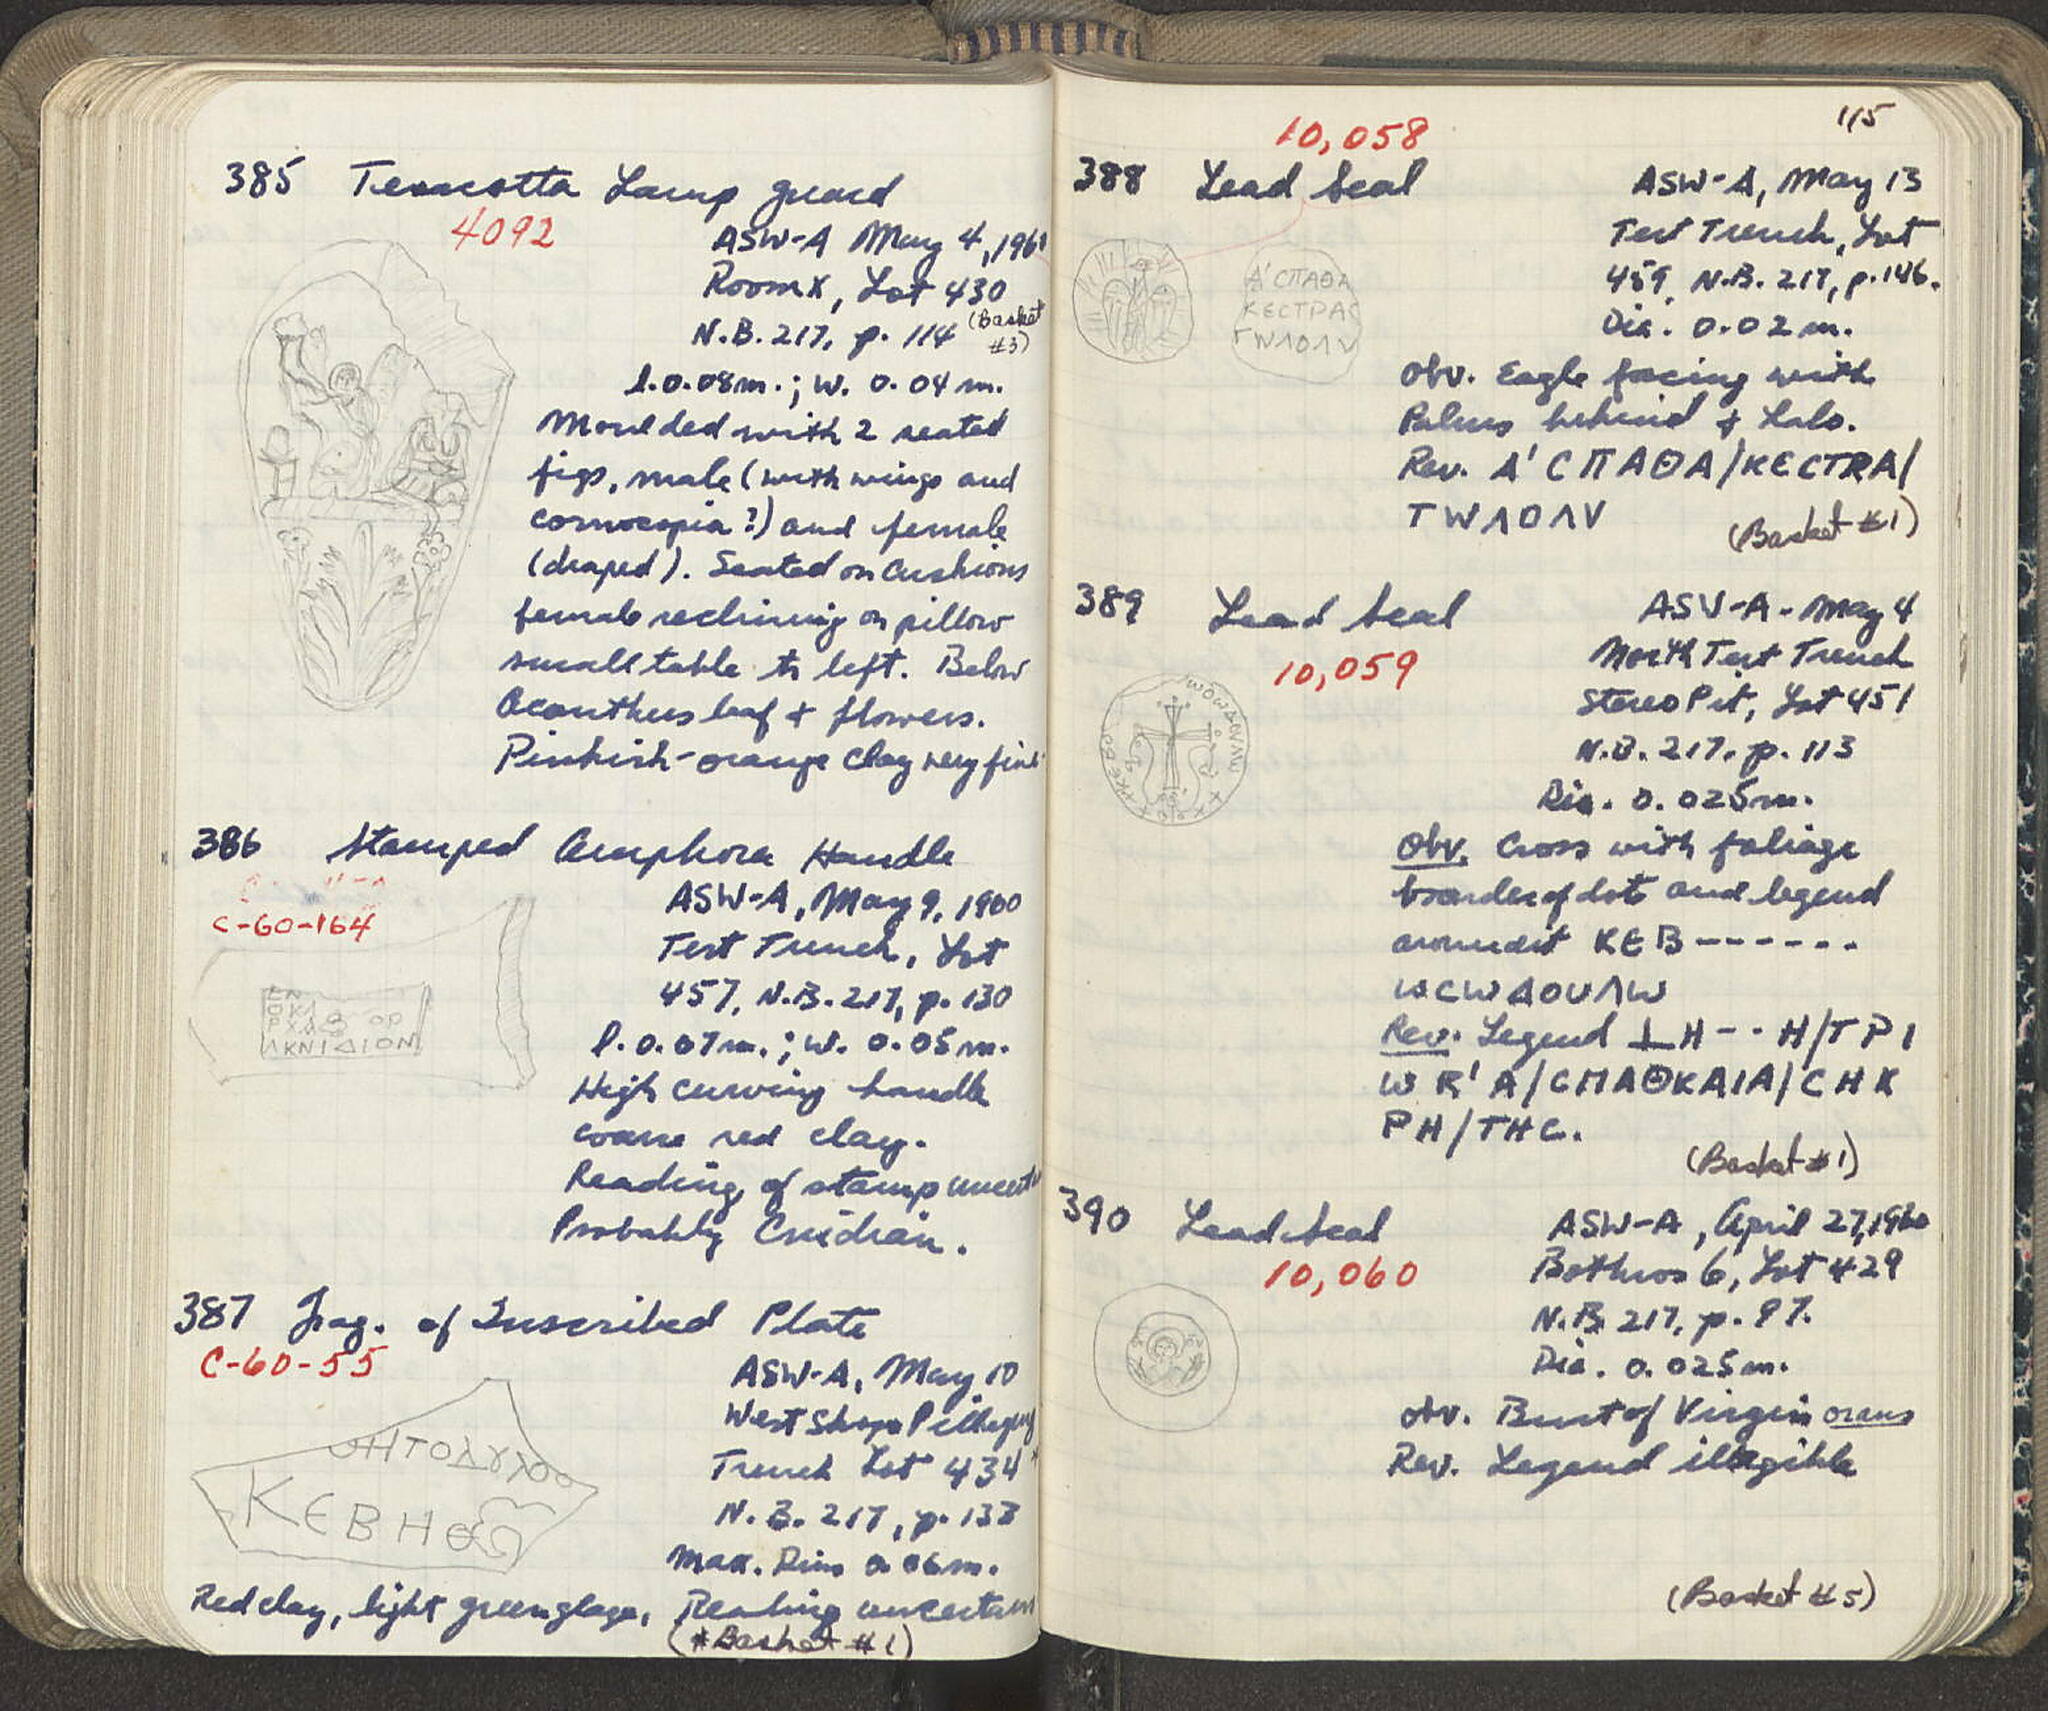 385 Terracotta Lamp guard
4092
ASW-A May 4, 1960
Room X, Lot 430
N.B. 217, p. 114 (Basket #3)
l. 0.08 m.; w. 0.04 m.
Moulded with 2 seated
figs, male (with wings and
cornucopia?) and female
(draped). Seated on cushions
female reclining on pillow
small table to left. Below
Acanthus leaf + flowers.
Pinkish-orange clay very fine
386 Stamped Amphora Handle
C-60-164
ASW-A, May 9, 1960
Test Trench, Lot
457, N.B. 217, p. 130
l. 0.07 m.; w. 0.05 m.
High curving handle
coarse red clay.
Reading of stamp
Probably Cnidian.
ΚΝΙΔΙΟΝ
387 Frag. of Inscribed Plate
C-60-55
ASW-A, May 10
West Shops
Trench Lot 434 *
N.B. 217, p. 138
Max. Dim 0.06 m.
ΚΕΒΗΘ
Red clay, light green glaze, Reading uncertain
(*Basket #1)
115
10,058
388 Lead Seal ASW-A, May 13
Test Trench, Lot
459, N.B. 217, p. 146.
Dia. 0.02 m.
Α' CΠΑΘΑ
ΚΕCΤΡΑC
ΤWΛΟΛV
Obv. Eagle facing with
Palms behind + halo.
Rev. Α' CΠΑΘΑ/ΚЄCTRA/
ΤWΛΟΛV (Basket #1)
389 Lead Seal ASW-A - May 4
10,059
North Test Trench
Stereo Pit, Lot 451
N.B. 217, p. 113
Dia. 0.025 m.
Obv. Cross with foliage
border of dots and legend
around it ΚЄΒ------
WCWΔΟUΛW
Rev. Legend ⊥Η--Η/ΤΡΙ
W Κ' Α/CΠΑΘΚΑΙΑ/CΗΚ
ΡΗ/ΤΗC.
(Basket #1)
390 Lead Seal ASW-A, April 27, 1960
10,060
Bothros 6, Lot 429
N.B. 217, p. 97.
Dia. 0.025 m.
Obv. Bust of Virgin orans
Rev. Legend illegible
(Basket #5)